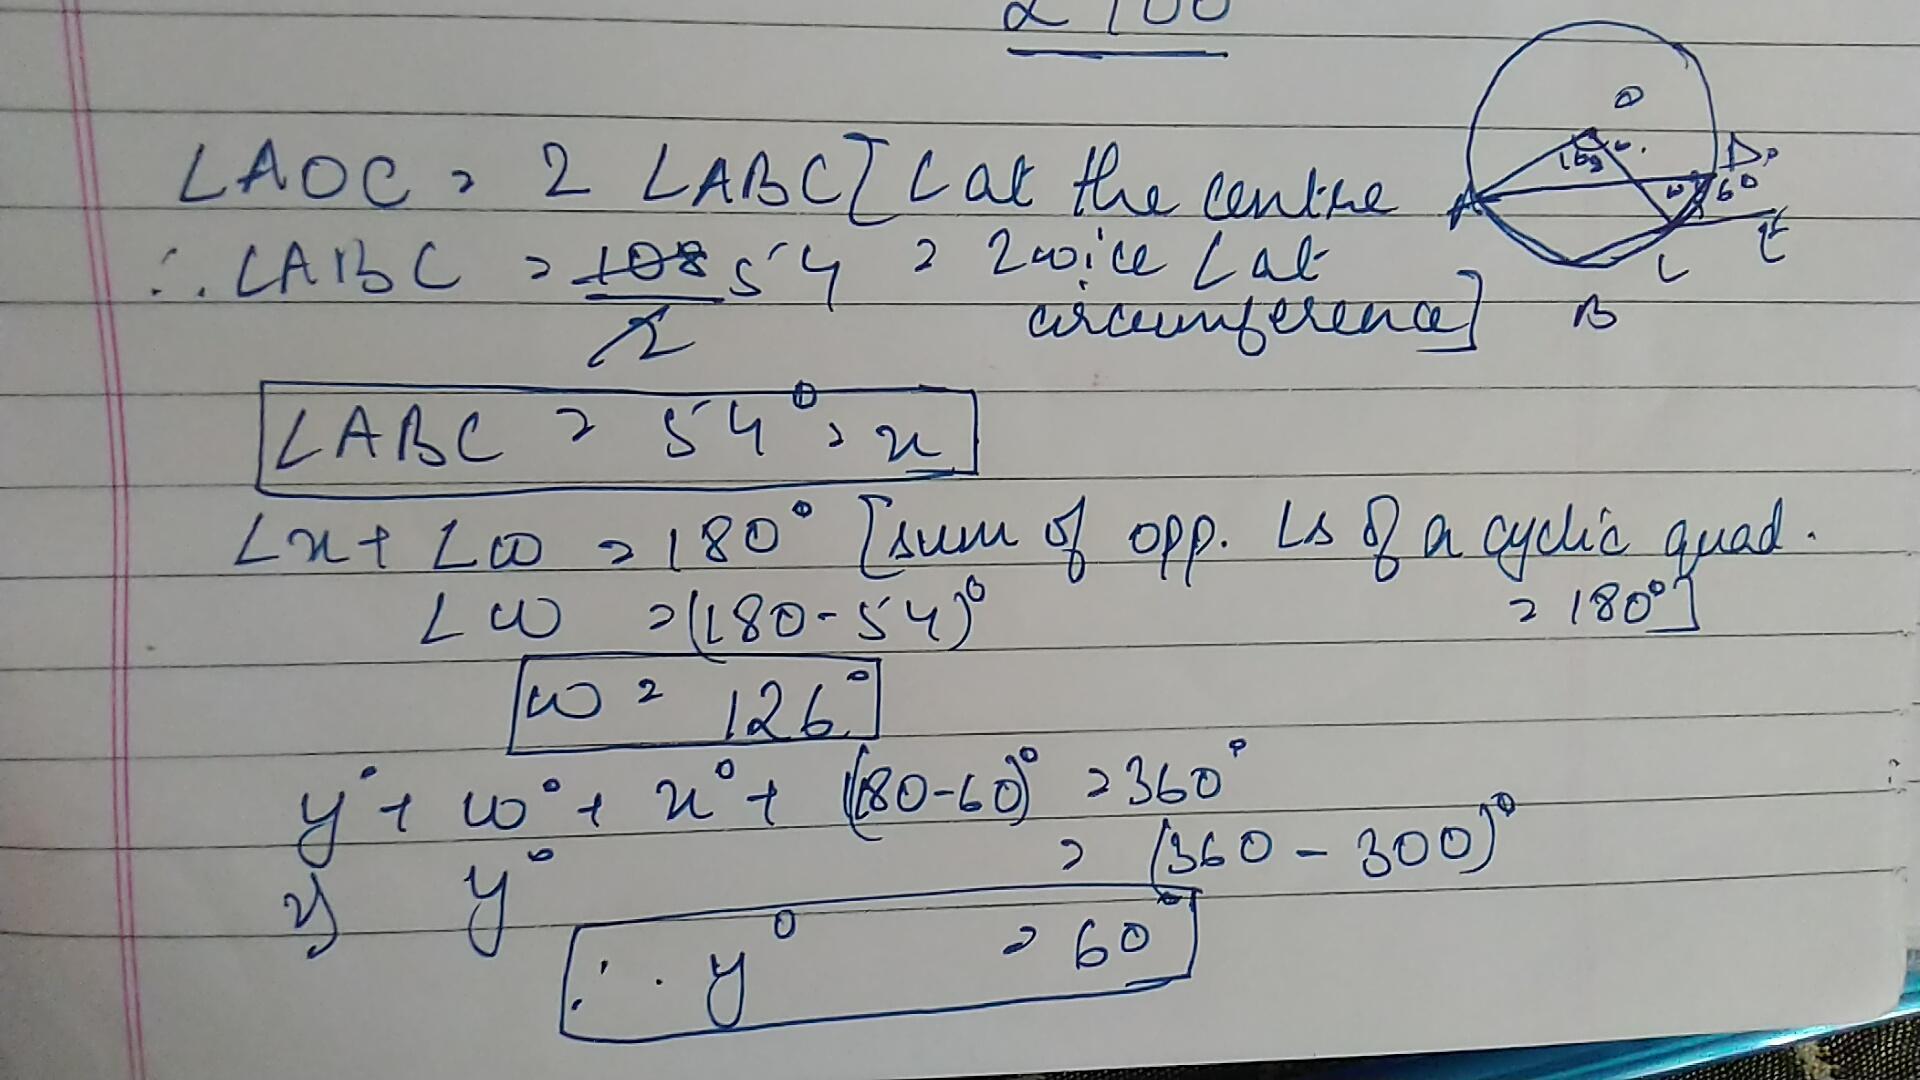 ∠AOC = 2 ∠ABC [∠ at the centre
∴ ∠ABC = 108/2 54 = 2wice ∠ at
circumference]
∠ABC = 54° = x
∠x + ∠w = 180° [sum of opp. ∠s of a cyclic quad.
∠w = (180-54)° = 180°]
w = 126°
y° + w° + x° + (180-60)° = 360°
y° = (360 - 300)°
∴ y° = 60°
O
D
A
60
E
C
B